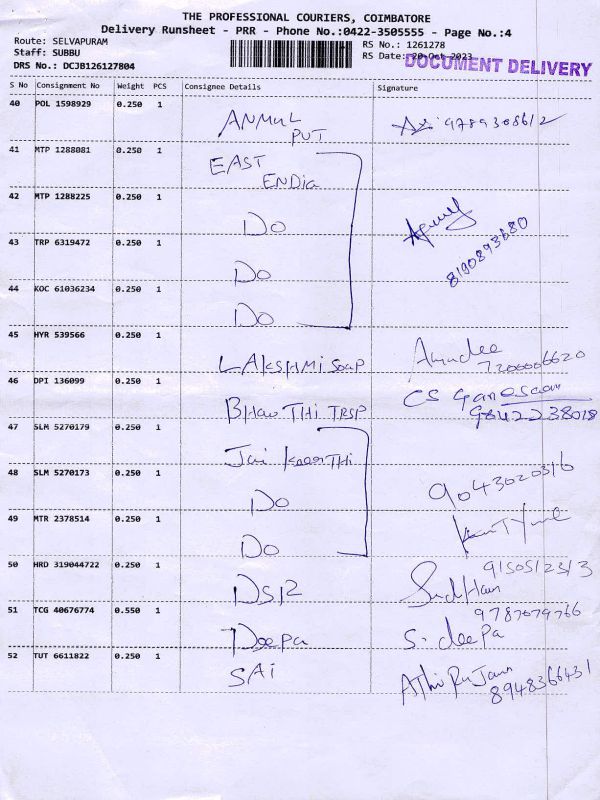 THE PROFESSIONAL COURIERS, COIMBATORE
Delivery Runsheet - PRR - Phone No.:0422-3505555 - Page No.:4
Route: SELVAPURAM
RS No.: 1261278
Staff: SUBBU
RS Date: 20-Oct-2023
DOCUMENT DELIVERY
DRS No.: DCJB126127804
S No Consignment No Weight PCS Consignee Details Signature
40 POL 1598929 0.250 1 ANMUL
PUT 9789308612
41 MTP 1288081 0.250 1 EAST
ENDia
42 MTP 1288225 0.250 1 Do
43 TRP 6319472 0.250 1 Do
8190893680
44 KOC 61036234 0.250 1 Do
45 HYR 539566 0.250 1 LAKSHMI Soap
7200006620
46 DPI 136099 0.250 1 BHaa THi TRSP CS Ganesaan
9842238018
47 SLM 5270179 0.250 1 Jai THi
48 SLM 5270173 0.250 1 Do 9043020316
49 MTR 2378514 0.250 1 Do
50 HRD 319044722 0.250 1 DS12 9150512313
SudHan
51 TCG 40676774 0.550 1 Deepa 9787079766
S. deePa
52 TUT 6611822 0.250 1 SAi
8948366431